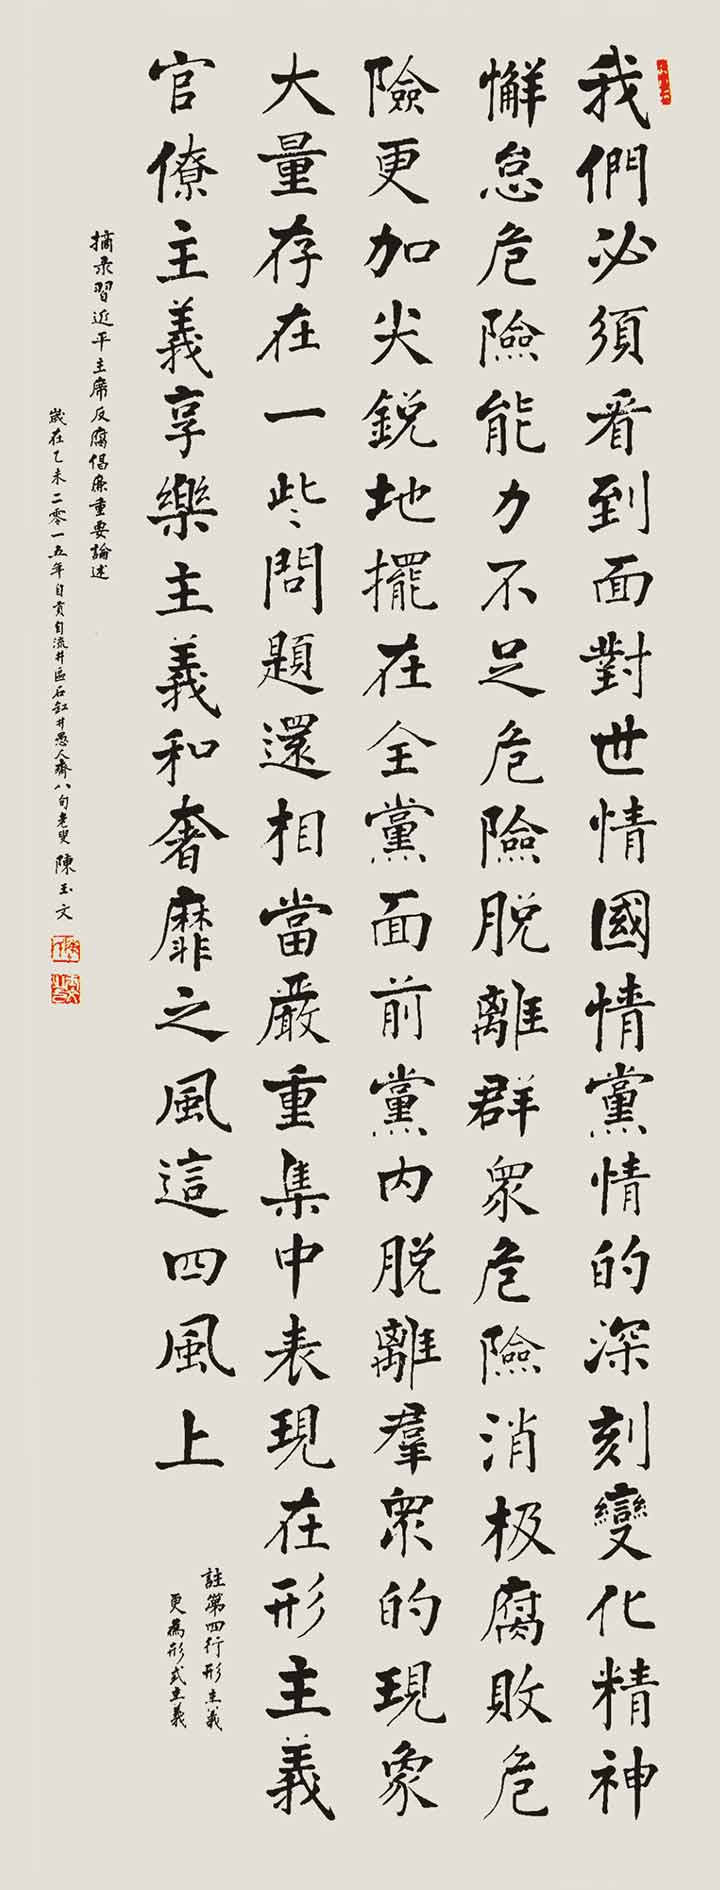 我們必須看到面對世情國情黨情的深刻變化精神
懈怠危險能力不足危險脱離群衆危險消极腐敗危
險更加尖鋭地擺在全黨面前黨内脱離羣衆的現象
大量存在一些問題還相當嚴重集中表現在形主義
官僚主義享樂主義和奢靡之風這四風上
註第四行形主義
更爲形式主義
摘录習近平主席反腐倡廉重要論述
歲在乙未二零一五年自貢自流井區石缸井愚人齋八旬老叟陳玉文